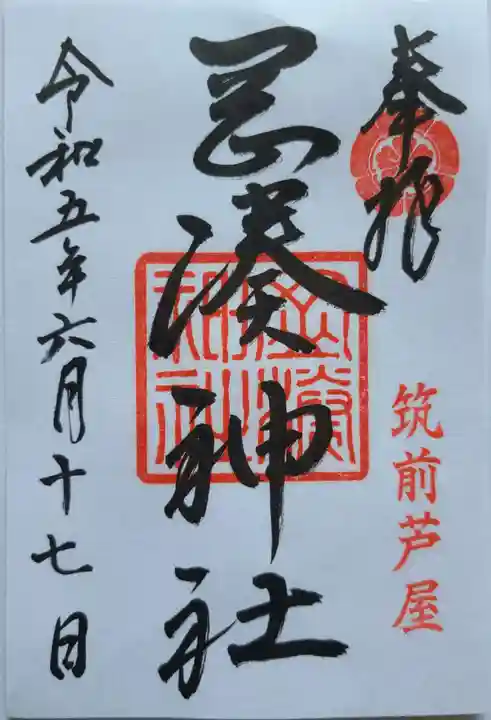 奉拝
筑前芦屋
岡湊神社
岡湊神社
令和五年六月十七日